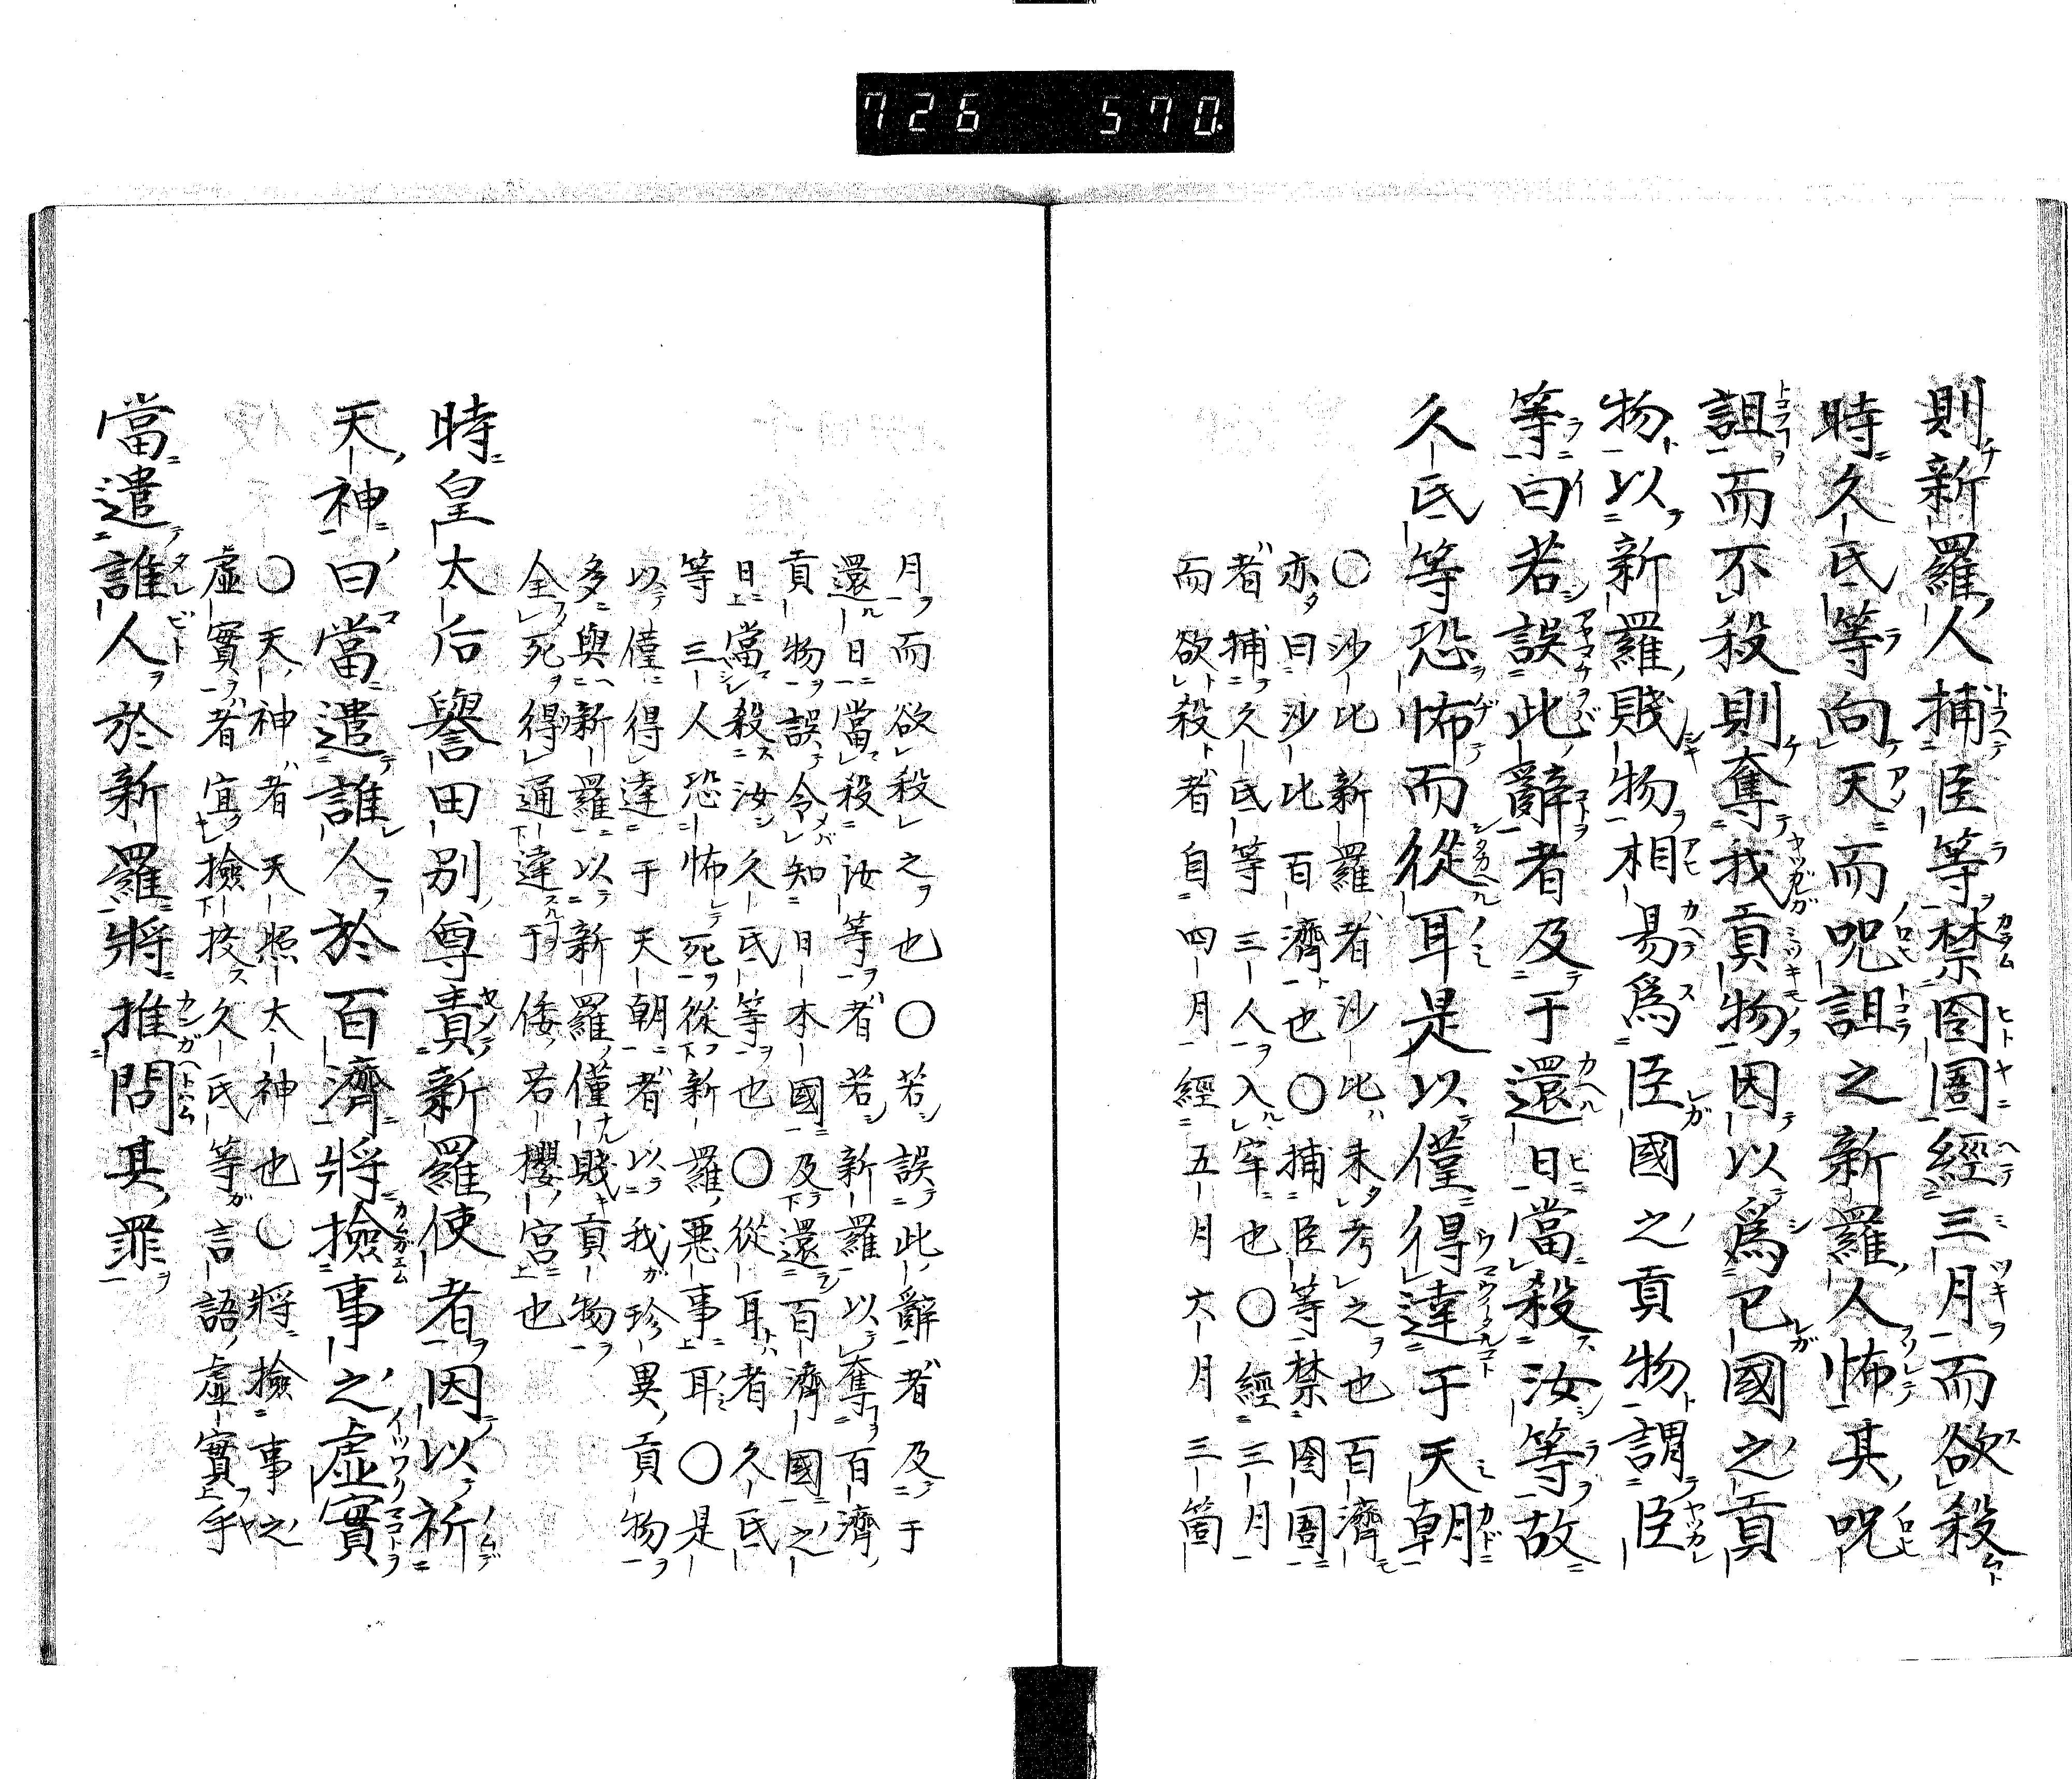 726 570.
則新羅人捕臣等禁囹圄經三月而欲殺
時久氐等向天而呪詛之新羅人怖其呪
詛而不殺則奪我貢物因以爲己國之貢
物以新羅賤物相易爲臣國之貢物謂臣
等曰若誤此辭者及于還日當殺汝等故
久氐等恐怖而從耳是以僅得達于天朝
○沙比新羅者沙比未考之也百濟
亦曰沙比百濟也○捕臣等禁囹圄
者捕久氐等三人入牢也○經三月
而欲殺者自四月經五月六月三箇
月而欲殺之也○若誤此辭者及于
還日當殺汝等者若新羅以奪百濟
貢物誤令知日本國及還百濟國之
日當殺汝久氐等也○從耳者久氐
等三人恐怖死從新羅惡事耳○是
以僅得達于天朝者以我珍異貢物
多與新羅以新羅僅賤貢物
全死得通達于倭若櫻宮也
時皇太后譽田別尊責新羅使者因以祈
天神曰當遣誰人於百濟將撿事之虛實
○天神者天照太神也○將撿事之
虛實者宜撿挍久氐等言語虛實乎
當遣誰人於新羅將推問其罪